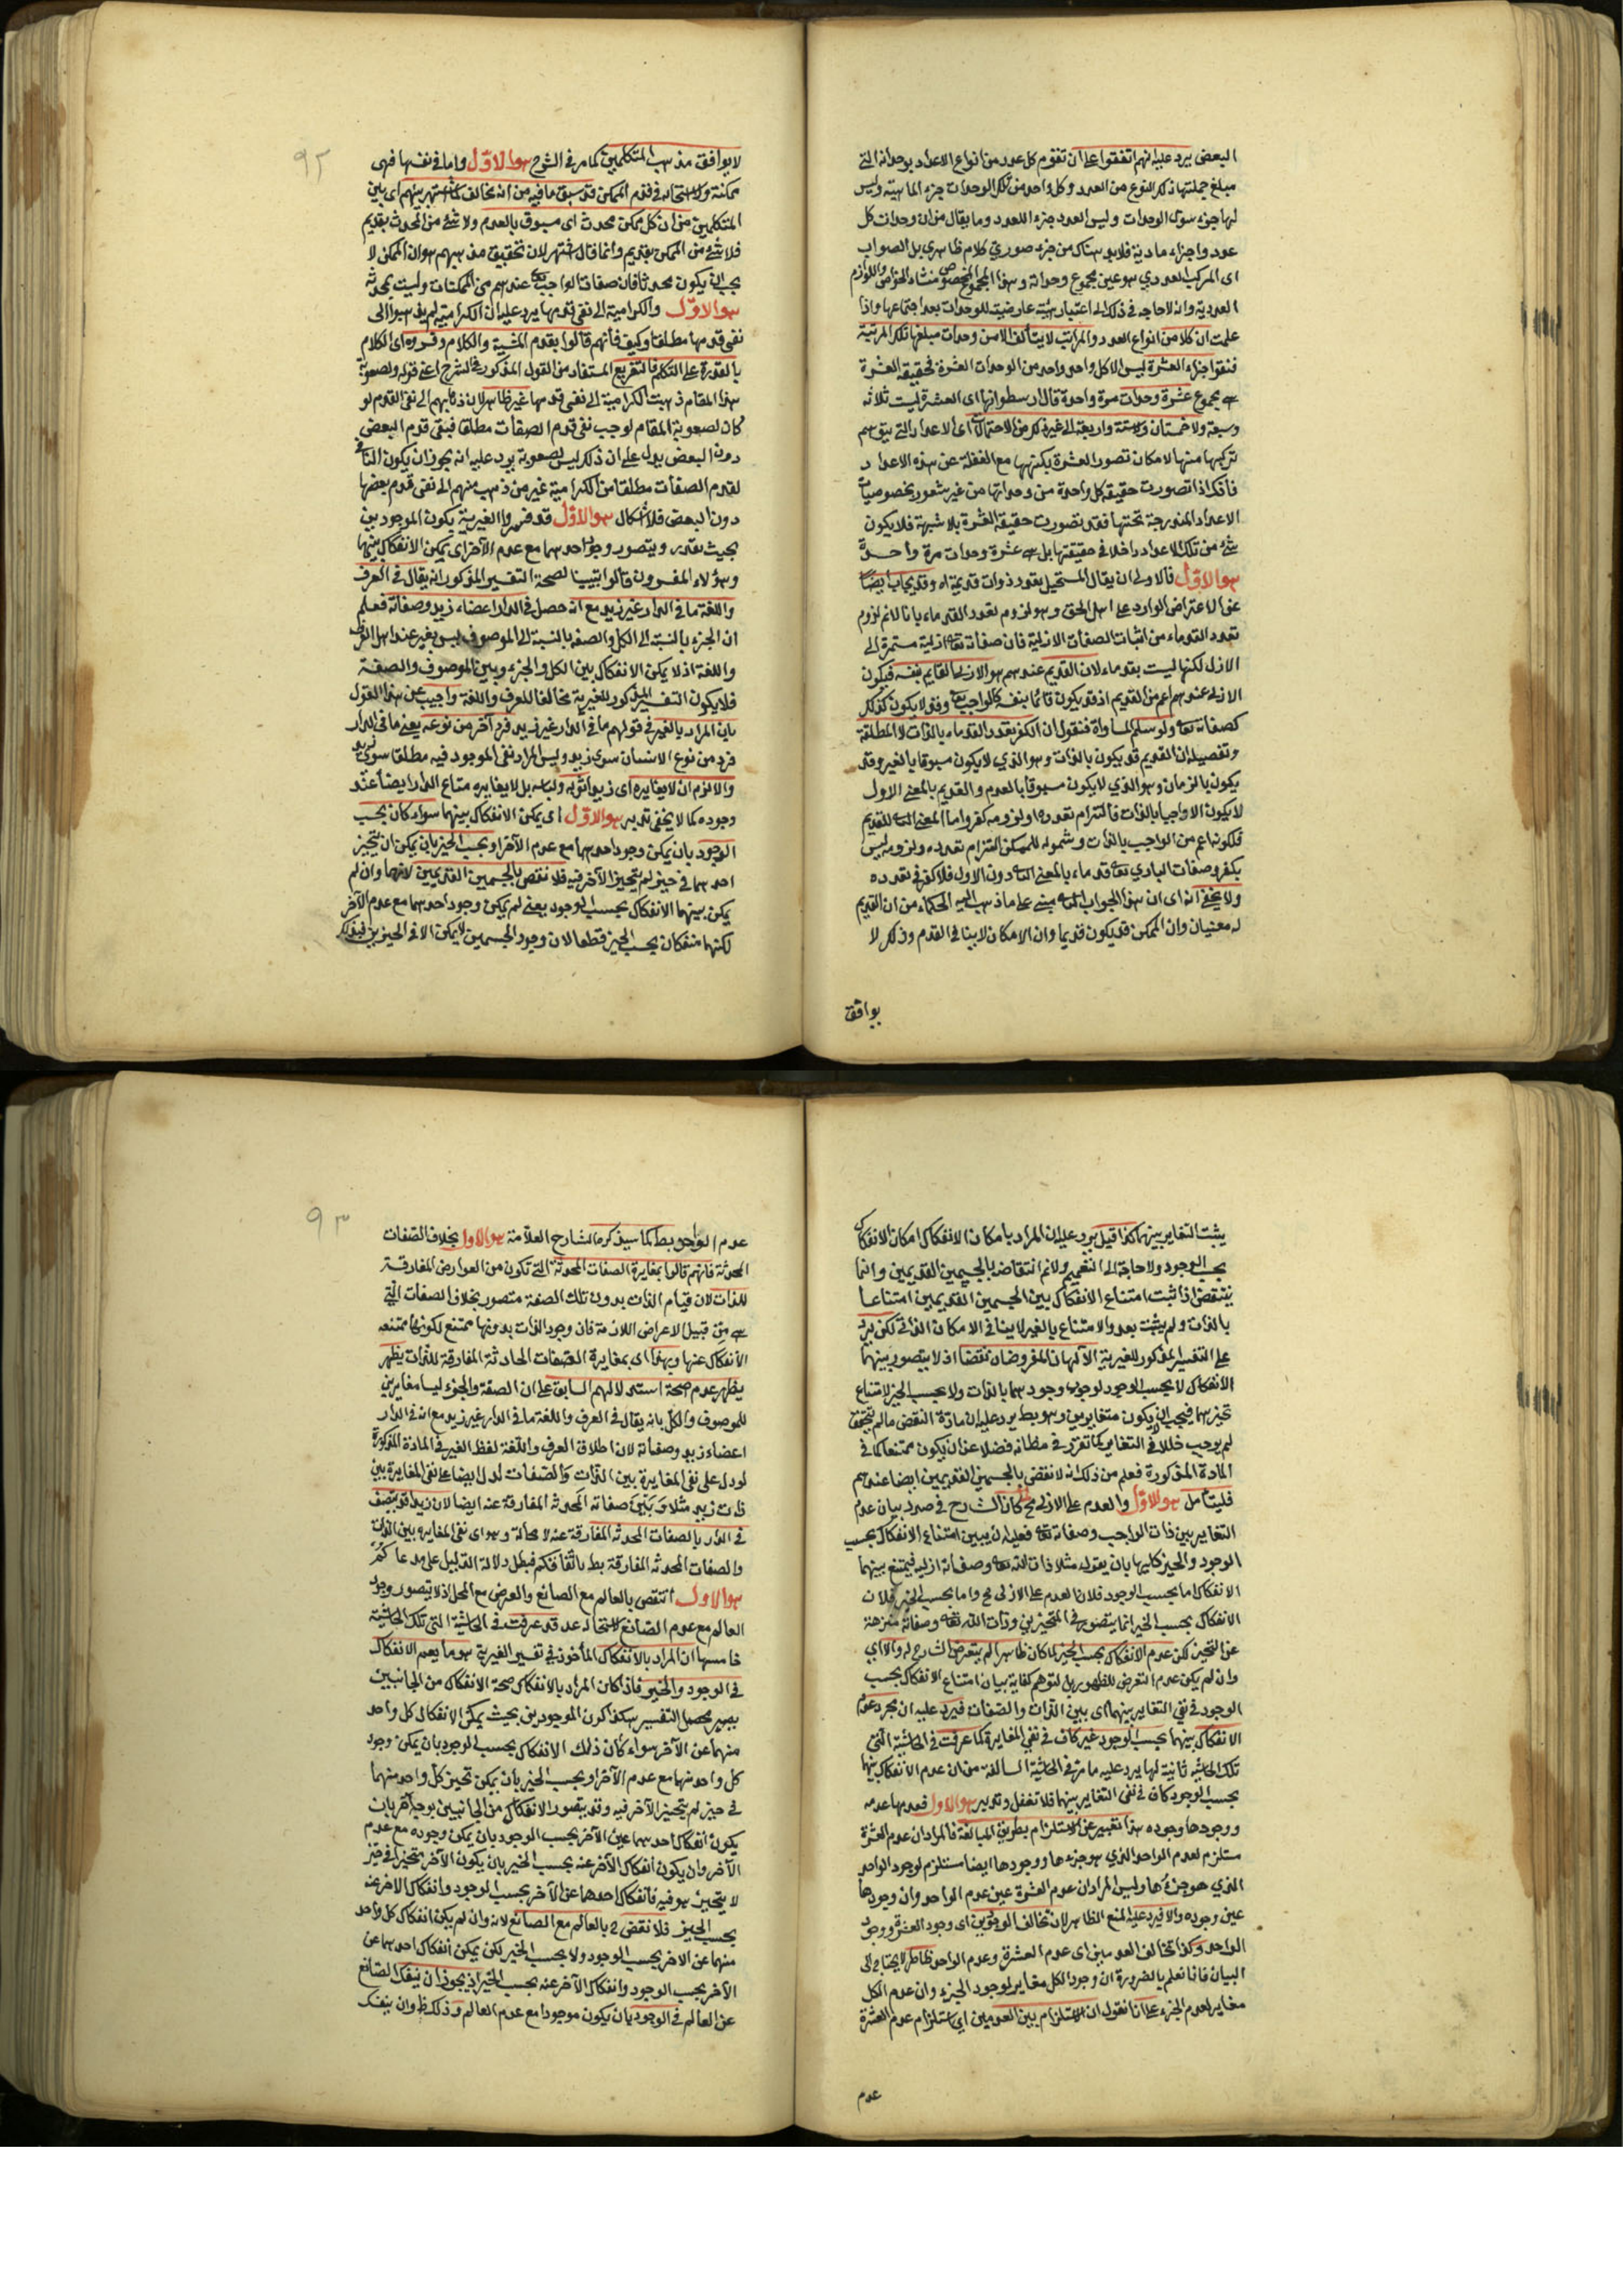 البعض يرد عليه انهم اتفقوا على ان تقوم كل عدد من انواع الاعداد بوحداته التي
مبلغ جملتها ذلك النوع من العدد وكل واحد من تلك الوحدات جزء الماهية وليس
لها جزء سوى الوحدات وليس العدد جزء للعدد وما يقال من ان وحدات كل
عدد واجزاء مادية فلابد هناك من جزء صوري كلام ظاهري بل الصواب
ان المركب العددي هو عين مجموع وحداته وهذا المجموع المخصوص منشاء الخواص واللوازم
العددية وانه لا حاجة في ذلك الى اعتبار هيئة عارضية للوحدات بعد اجتماعها واذا
علمت ان كلا من انواع العدد والمراتب لا يتألف الا من وحدات مبلغها تلك المرتبة
فنقول جزء العشرة ليس الا كل واحد واحد من الوحدات العشرة فحقيقة العشرة
هي مجموع عشرة وحدات مرة واحدة قال ارسطو انها اى العشرة ليست ثلاثة
وسبعة ولا خمستان ولا ستة واربعة الى غير ذلك من الاحتمالات اى الاعداد التي يتوهم
تركبها منها لامكان تصور العشرة بكنهها مع الغفلة عن هذه الاعداد
فانك اذا تصورت حقيقة كل واحدة من وحداتها من غير شعور بخصوصيات
الاعداد المندرجة تحتها فقد تصورت حقيقة العشرة بلا شبهة فلا يكون
شئ من تلك الاعداد داخلا في حقيقتها بل هي عشرة وحدات مرة واحدة
هو الاول فالاولى ان يقال المستحيل تعدد ذوات قديمة اه وقد يجاب ايضا
عن الاعتراض الوارد على اهل الحق وهو لزوم تعدد القدماء بانا لا نم لزوم
تعدد القدماء من اثبات الصفات الازلية فان صفاته تعا ازلية مستمرة الى
الازل لكنها ليست بقدماء لان القديم عندهم هو الازلي القايم بنفسه فيكون
الازلي عندهم اعم من القديم اذ قد يكون قائما بنفسه كالواجب تعا وقد لا يكون كذلك
كصفاته تعا ولو سلم المساواة فنقول ان الكفر تعدد القدماء بالذات لا المطلقة
وتفصيله ان القديم قد يكون بالذات وهو الذي لا يكون مسبوقا بالغير وقد
يكون بالزمان وهو الذي لا يكون مسبوقا بالعدم والقديم بالمعنى الاول
لا يكون الا واجبا بالذات فالتزام تعدده اولزومه كفر واما المعنى الثاني للقديم
فلكونه اعم من الواجب بالذات وشموله للممكن التزام تعدده ولزومه ليس
بكفر وصفات الباري تعا قدماء بالمعنى الثاني دون الاول فلا كفر في تعدده
ولا يخفى انه اى ان هذا الجواب الثاني مبني على ما ذهب اليه الحكماء من ان القديم
له معنيان وان الممكن قد يكون قديما وان الامكان لا ينافي القدم وذلك لا
يوافق
٩٢
لا يوافق مذهب المتكلمين كما مر في الشرح هو الاول واما في نفسها فهي
ممكنة ولا استحالة في قدم الممكن قد سبق ما فيه من انه مخالف لما اشتهر بينهم اى بين
المتكلمين من ان كل ممكن محدث اى مسبوق بالعدم ولا شئ من المحدث بقديم
فلا شئ من الممكن بقديم وانما قال اشتهر لان تحقيق مذهبهم هو ان الممكن لا
يجب ان يكون محدثا فان صفات الواجب تعا عندهم من الممكنات وليست بمحدثة
هو الاول والكرامية الى نفي قدمها يرد عليه ان الكرامية لم يذهبوا الى
نفي قدمها مطلقا وكيف فانهم قالوا بقدم المشية والكلام وفسروه اى الكلام
بالقدرة على التكلم فالتفريع المستفاد من القول المذكور في الشرح اعني قوله ولصعوبة
هذا المقام ذهبت الكرامية الى نفي قدمها غير ظاهر لان ذهابهم الى نفي القدم لو
كان لصعوبة المقام لوجب نفي قدم الصفات مطلقا فنفي قدم البعض
دون البعض يدل على ان ذلك ليس لصعوبة يرد عليه انه يجوز ان يكون النافي
لقدم الصفات مطلقا من الكرامية غير من ذهب منهم الى نفي قدم بعضها
دون البعض فلا اشكال هو الاول قد فسروا الغيرية بكون الموجودين
بحيث يقدر ويتصور وجود احدهما مع عدم الآخر اى يمكن الانفكاك بينهما
وهؤلاء المفسرون قالوا تبيينا لصحة التفسير المذكور انه يقال في العرف
واللغة ما في الدار غير زيد مع انه حصل في الدار اعضاء زيد وصفاته فعلم
ان الجزء بالنسبة الى الكل والصفة بالنسبة الى الموصوف ليس بغير عند اهل العرف
واللغة اذ لا يمكن الانفكاك بين الكل والجزء وبين الموصوف والصفة
فلا يكون التفسير المذكور للغيرية مخالفا للعرف واللغة واجيب عن هذا القول
بان المراد بالغير في قولهم ما في الدار غير زيد فرد آخر من نوعه يعني ما في الدار
فرد من نوع الانسان سوى زيد وليس المراد نفي الموجود فيه مطلقا سوى زيد
والا لزم ان لا يغايره اى زيدا ثوبه ولباسه بل لا يغايره متاع الدار ايضا عند
وجوده كما لا يخفى تدبر هو الاول اى يمكن الانفكاك بينهما سواء كان بحسب
الوجود بان يمكن وجود احدهما مع عدم الآخر او بحسب الحيز بان يمكن ان يتحيز
احدهما في حيز لم يتحيز الآخر فيه فلا نقض بالجسمين القديمين لانهما وان لم
يمكن بينهما الانفكاك بحسب الوجود يعني لم يمكن وجود احدهما مع عدم الآخر
لكنهما منفكان بحسب الحيز قطعا لان وجود الجسمين لا يمكن الا في الحيزين فبذلك
يثبت التغاير بينهما كذا قيل يرد عليه ان المراد بامكان الانفكاك امكان الانفكاك
بحسب الوجود ولا حاجة الى التعميم ولا نم انتقاضه بالجسمين القديمين وانما
ينتقض اذا ثبت امتناع الانفكاك بين الجسمين القديمين امتناعا
بالذات ولم يثبت بعد والامتناع بالغير لا ينافي الامكان الذاتي لكن يرد
على التفسير المذكور للغيرية الآلهان المفروضان نقضا اذ لا يتصور بينهما
الانفكاك لا بحسب الوجود لوجوب وجودهما بالذات ولا بحسب الحيز لامتناع
تحيزهما فيجب ان لا يكون متغايرين وهو بط يرد عليه ان مادة النقض ما لم يتحقق
لم يوجب خللا في التغاير كما تقرر في مظانه فضلا عن ان يكون ممتنعا كما في
المادة المذكورة فعلم من ذلك انه لا نقض بالجسمين القديمين ايضا عندهم
فليتأمل هو الاول والعدم على الازلي مح كان الشارح في صدد بيان عدم
التغاير بين ذات الواجب وصفاته تعا فعليه ان يبين امتناع الانفكاك بحسب
الوجود والحيز كليهما بان يقول مثلا ذات الله تعا وصفاته ازلية فيمتنع بينهما
الانفكاك اما بحسب الوجود فلان العدم على الازلي مح واما بحسب الحيز فلان
الانفكاك بحسب الحيز انما يتصور في المتحيزين وذات الله تعا وصفاته منزهة
عن التحيز لكن عدم الانفكاك بحسب الحيز لما كان ظاهرا لم يتعرض الشارح له والا اى
وان لم يكن عدم التعرض للظهور بل لتوهم كفاية بيان امتناع الانفكاك بحسب
الوجود في نفي التغاير بينهما اى بين الذات والصفات فيرد عليه ان مجرد عدم
الانفكاك بينهما بحسب الوجود غير كاف في نفي المغايرة كما عرفت في الحاشية التي
تلك الحاشية ثانية لها يرد عليه ما مر في الحاشية السالفة من ان عدم الانفكاك بينهما
بحسب الوجود كاف في نفي التغاير بينهما فلا تغفل وتدبر هو الاول فعدمها عدمه
ووجودها وجوده هذا تعبير عن الاستلزام بطريق المبالغة فالمراد ان عدم العشرة
مستلزم لعدم الواحد الذي هو جزءها ووجودها ايضا مستلزم لوجود الواحد
الذي هو جزءها وليس المراد ان عدم العشرة عين عدم الواحد وان وجودها
عين وجوده والا فيرد عليه المنع الظاهر لان تخالف الوجودين اى وجود العشرة ووجود
الواحد وكذا تخالف العدمين اى عدم العشرة وعدم الواحد ظاهر لا يحتاج الى
البيان فانا نعلم بالضرورة ان وجود الكل مغاير لوجود الجزء وان عدم الكل
مغاير لعدم الجزء على انا نقول ان الاستلزام بين العدمين اى استلزام عدم العشرة
عدم
٩٣
عدم الواحد بط كما سيذكره الشارح العلامة هو الاول بخلاف الصفات
المحدثة فانهم قالوا بمغايرة الصفات المحدثة التي تكون من العوارض المفارقة
للذات لان قيام الذات بدون تلك الصفة متصور بخلاف الصفات التي
هي من قبيل الاعراض اللازمة فان وجود الذات بدونها ممتنع لكونها ممتنعة
الانفكاك عنها وبهذا اى بمغايرة الصفات الحادثة المفارقة للذات يظهر
يظهر عدم صحة استدلالهم السابق على ان الصفة والجزء ليسا مغايرين
للموصوف والكل بانه يقال في العرف واللغة ما في الدار غير زيد مع ان في الدار
اعضاء زيد وصفاته لان اطلاق العرف واللغة لفظ الغير في المادة المذكورة
لو دل على نفي المغايرة بين الذات والصفات لدل ايضا على نفي المغايرة بين
ذات زيد مثلا وبين صفاته المحدثة المفارقة عنه ايضا لان زيدا قد يتصف
في الدار بالصفات المحدثة المفارقة عنه لا محالة وهو اى نفي المغايرة بين الذات
والصفات المحدثة المفارقة بط باتفاقكم فبطل دلالة الدليل على مدعاكم
هو الاول انتقض بالعالم مع الصانع والعرض مع المحل اذ لا يتصور وجود
العالم مع عدم الصانع لاستحالة عدمه قد عرفت في الحاشية التي تلك الحاشية
خامستها ان المراد بالانفكاك المأخوذ في تفسير الغيرية هو ما يعم الانفكاك
في الوجود والحيز فاذا كان المراد بالانفكاك صحة الانفكاك من الجانبين
يصير محصل التفسير هكذا كون الموجودين بحيث يمكن الانفكاك لكل واحد
منهما عن الآخر سواء كان ذلك الانفكاك بحسب الوجود بان يمكن وجود
كل واحد منهما مع عدم الآخر او بحسب الحيز بان يمكن تحيز كل واحد منهما
في حيز لم يتحيز الآخر فيه وقد يتصور الانفكاك من الجانبين بوجه آخر بان
يكون انفكاك احدهما عن الآخر بحسب الوجود بان يمكن وجوده مع عدم
الآخر وان يكون انفكاك الآخر عنه بحسب الحيز بان يكون الآخر متحيزا في حيز
لا يتحيز هو فيه فانفكاك احدهما عن الآخر بحسب الوجود وانفكاك الآخر عنه
بحسب الحيز فلا نقض ح بالعالم مع الصانع لانه وان لم يكن انفكاك كل واحد
منهما عن الاخر بحسب الوجود ولا بحسب الحيز لكن يمكن انفكاك احدهما عن
الآخر بحسب الوجود وانفكاك الآخر عنه بحسب الحيز اذ يجوز ان ينفك الصانع
عن العالم في الوجود بان يكون موجودا مع عدم العالم وذلك ظ وان ينفك